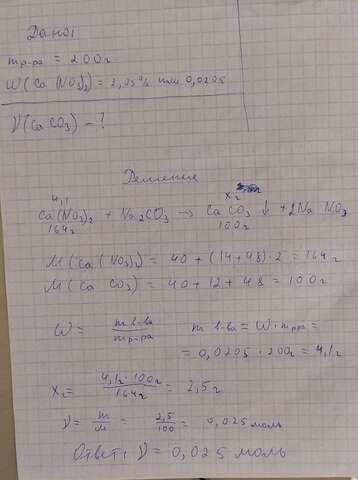 Дано:
mр-ра = 200г
W(Ca(NO3)2) = 2,05% или 0,0205
ν(CaCO3) - ?
Решение
4,1 х г
Ca(NO3)2 + Na2CO3 → CaCO3↓ + 2NaNO3
164г 100г
M(Ca(NO3)2) = 40 + (14+48)·2 = 164г
M(CaCO3) = 40 + 12 + 48 = 100г
W = m в-ва / mр-ра m в-ва = W · mрра =
= 0,0205 · 200г = 4,1г
Xг = 4,1г · 100г / 164г = 2,5г
ν = m/M = 2,5/100 = 0,025 моль
Ответ: ν = 0,025 моль